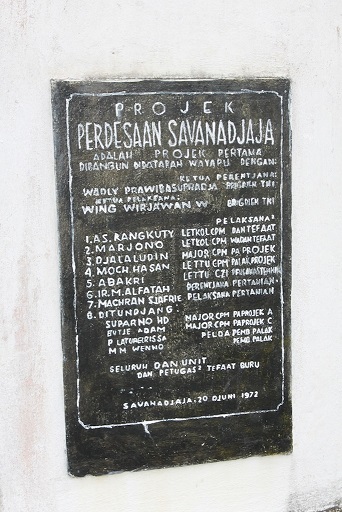 PROJEK
PERDESAAN SAVANADJAJA
ADALAH PROJEK PERTAMA
DIBANGUN DIDATARAN WAYAPU DENGAN:
KETUA PERENTJANA:
WADLY PRAWIRASUPRADJA BRIGDJEN TNI
KETUA PELAKSANA:
WING WIRJAWAN.W BRIGDJEN TNI
PELAKSANA²
1. A.S. RANGKUTY LETKOL CPM DAN TEFAAT
2. MARJONO LETKOL CPM WADAN TEFAAT
3. DJALALUDIN MAJOR CPM PA PROJEK
4. MOCH. HASAN LETTU CPM PALAK PROJEK
5. ABAKRI LETTU CZI
6. IR.M. ALFATAH PERENTJANA PERTANIAN
7. MACHRAN SJAFRIE PELAKSANA PERTANIAN
8. DITUNDJANG:
SUPARNO HD MAJOR CPM PAPROJEK A
BUTJE ADAM MAJOR CPM PAPROJEK C
P LATURERISSA PELDA PEMB PALAK
M M WENNO PEMB PALAK
SELURUH DAN UNIT
DAN PETUGAS² TEFAAT BURU
SAVANADJAJA, 20 DJUNI 1972